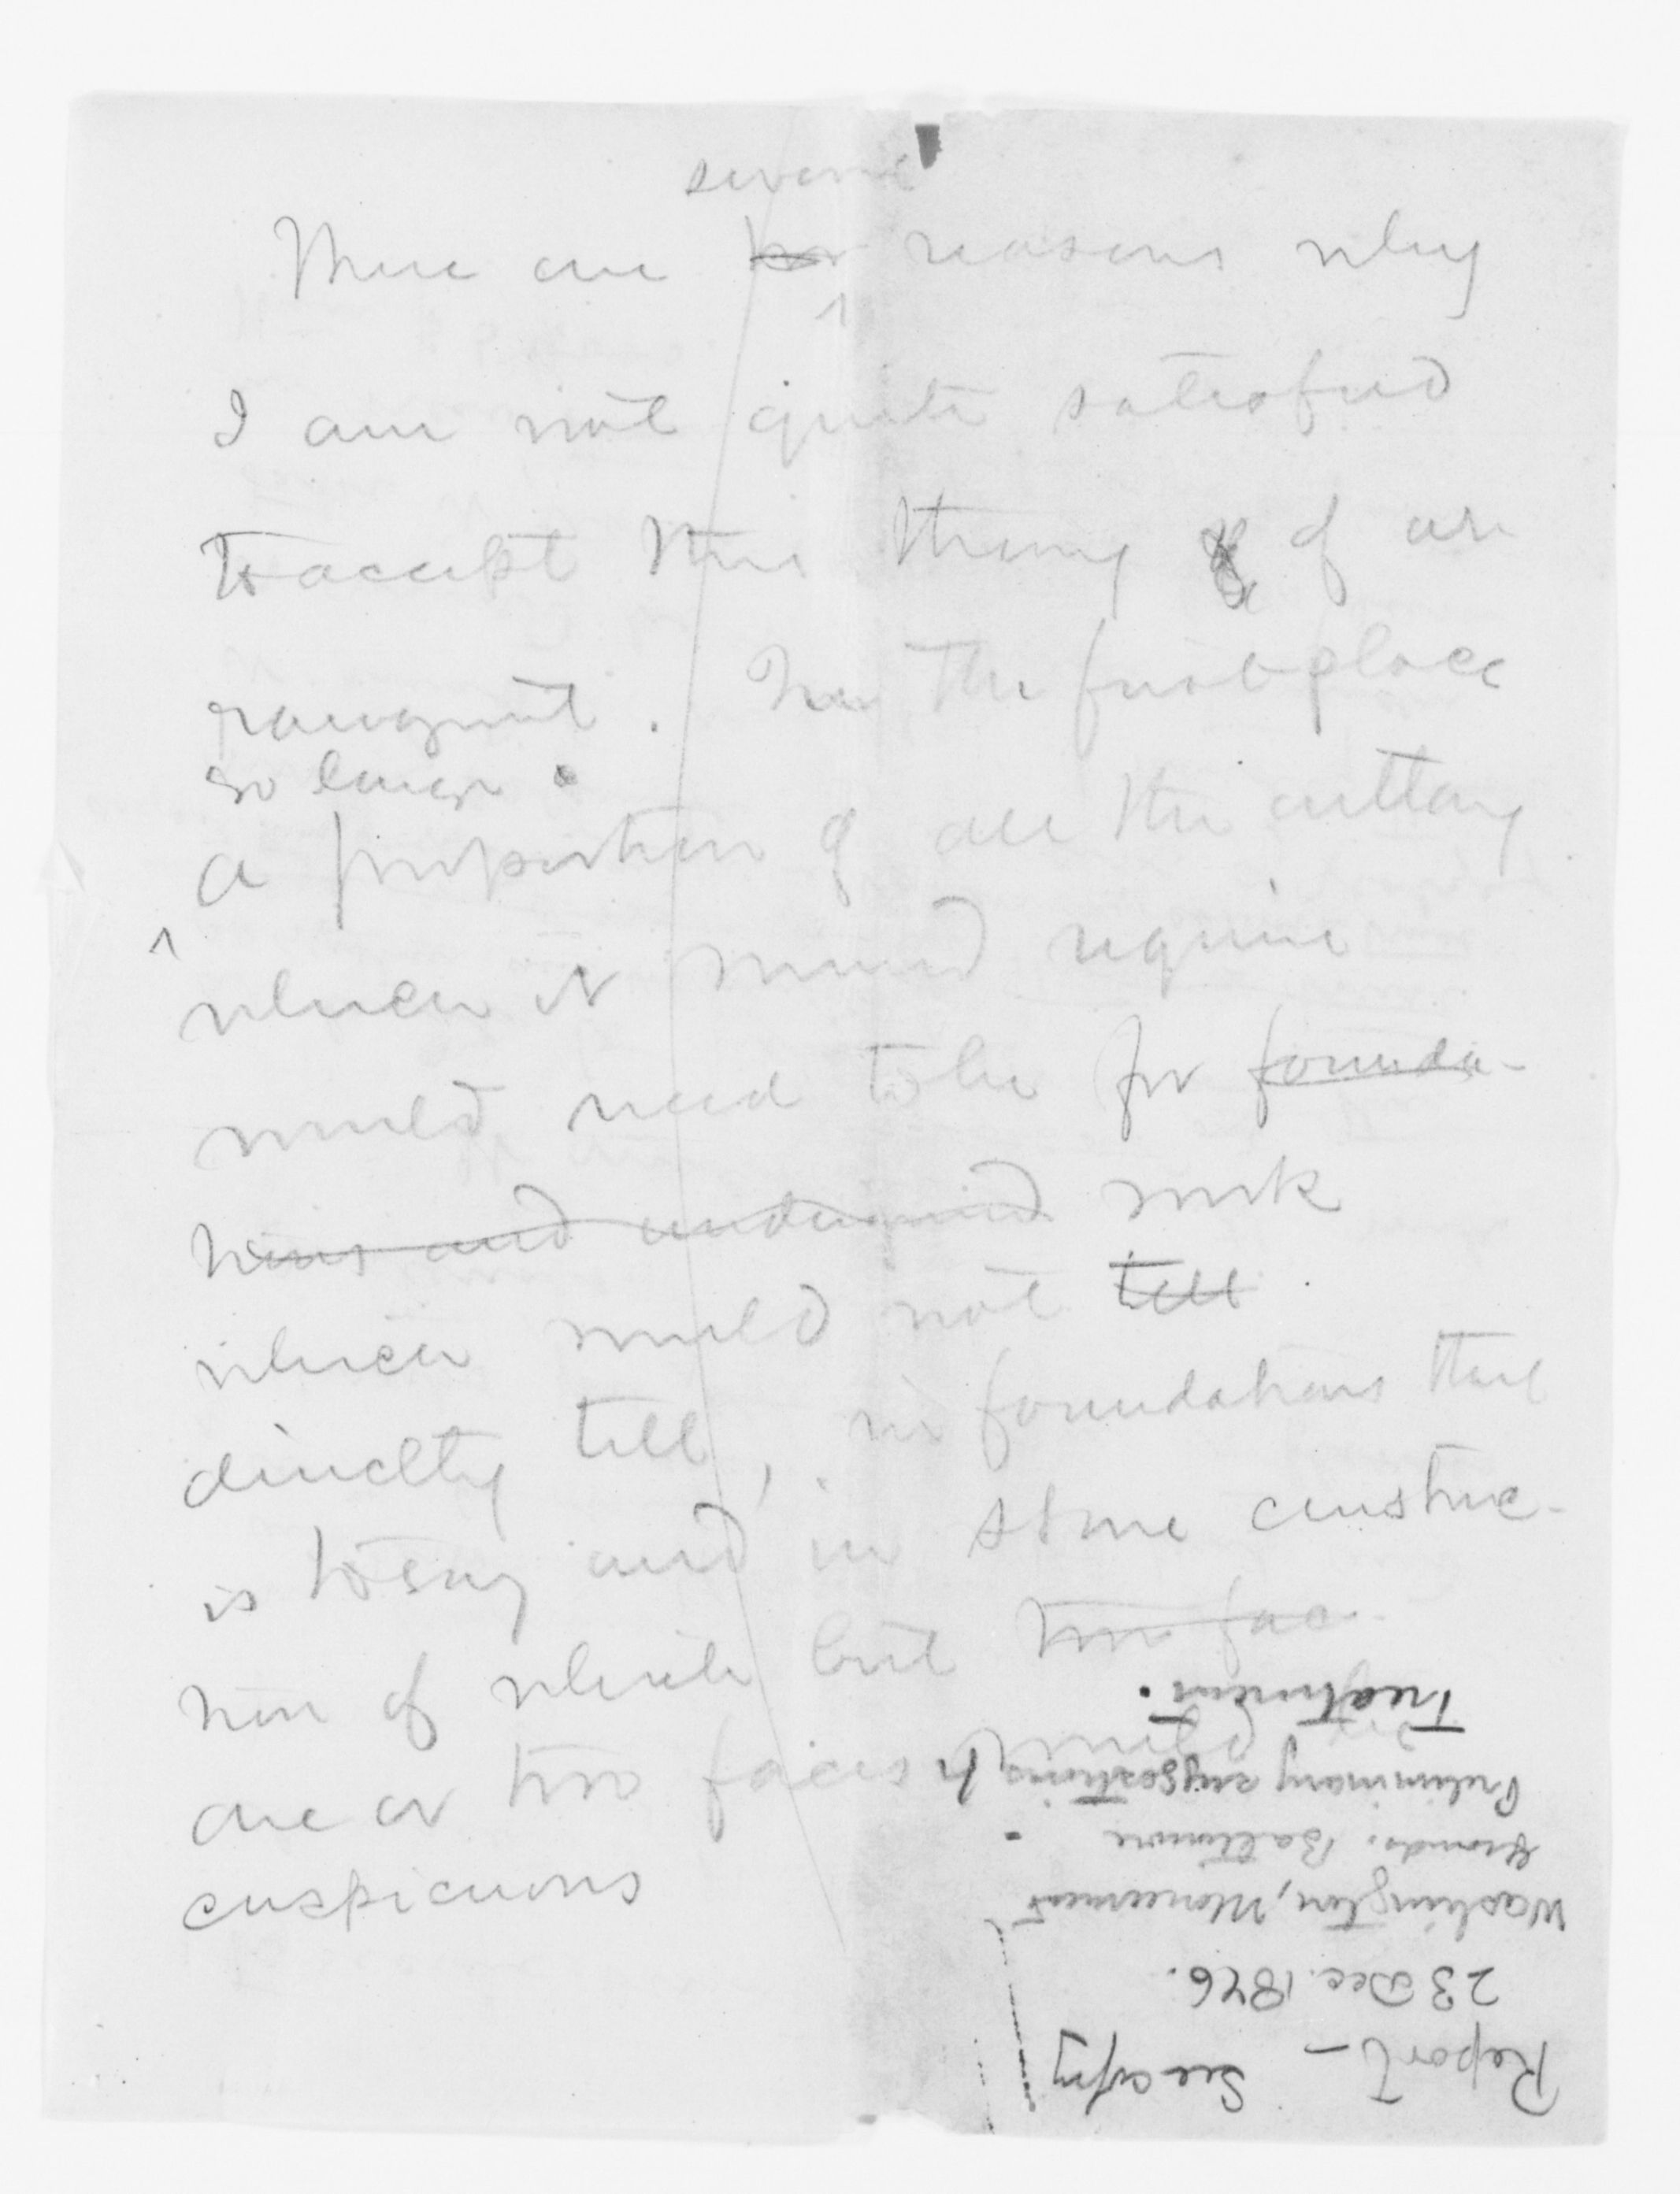 several
There are two reasons why
I am not quite satisfied
to accept this theory of ar
rangm't. In the first place
so large a
a proportion of all the cutting
which it would require
would need to be for founda-
tions and undermined work
which would not tell
directly tell, in foundations that
is to say and in stone construc-
tion of which but two fac
one or two faces would be
cuspicuous
Report - See copy
23 Dec. 1876.
Washington, Monument
Grounds. Baltimore
Preliminary suggestions
Treatment.